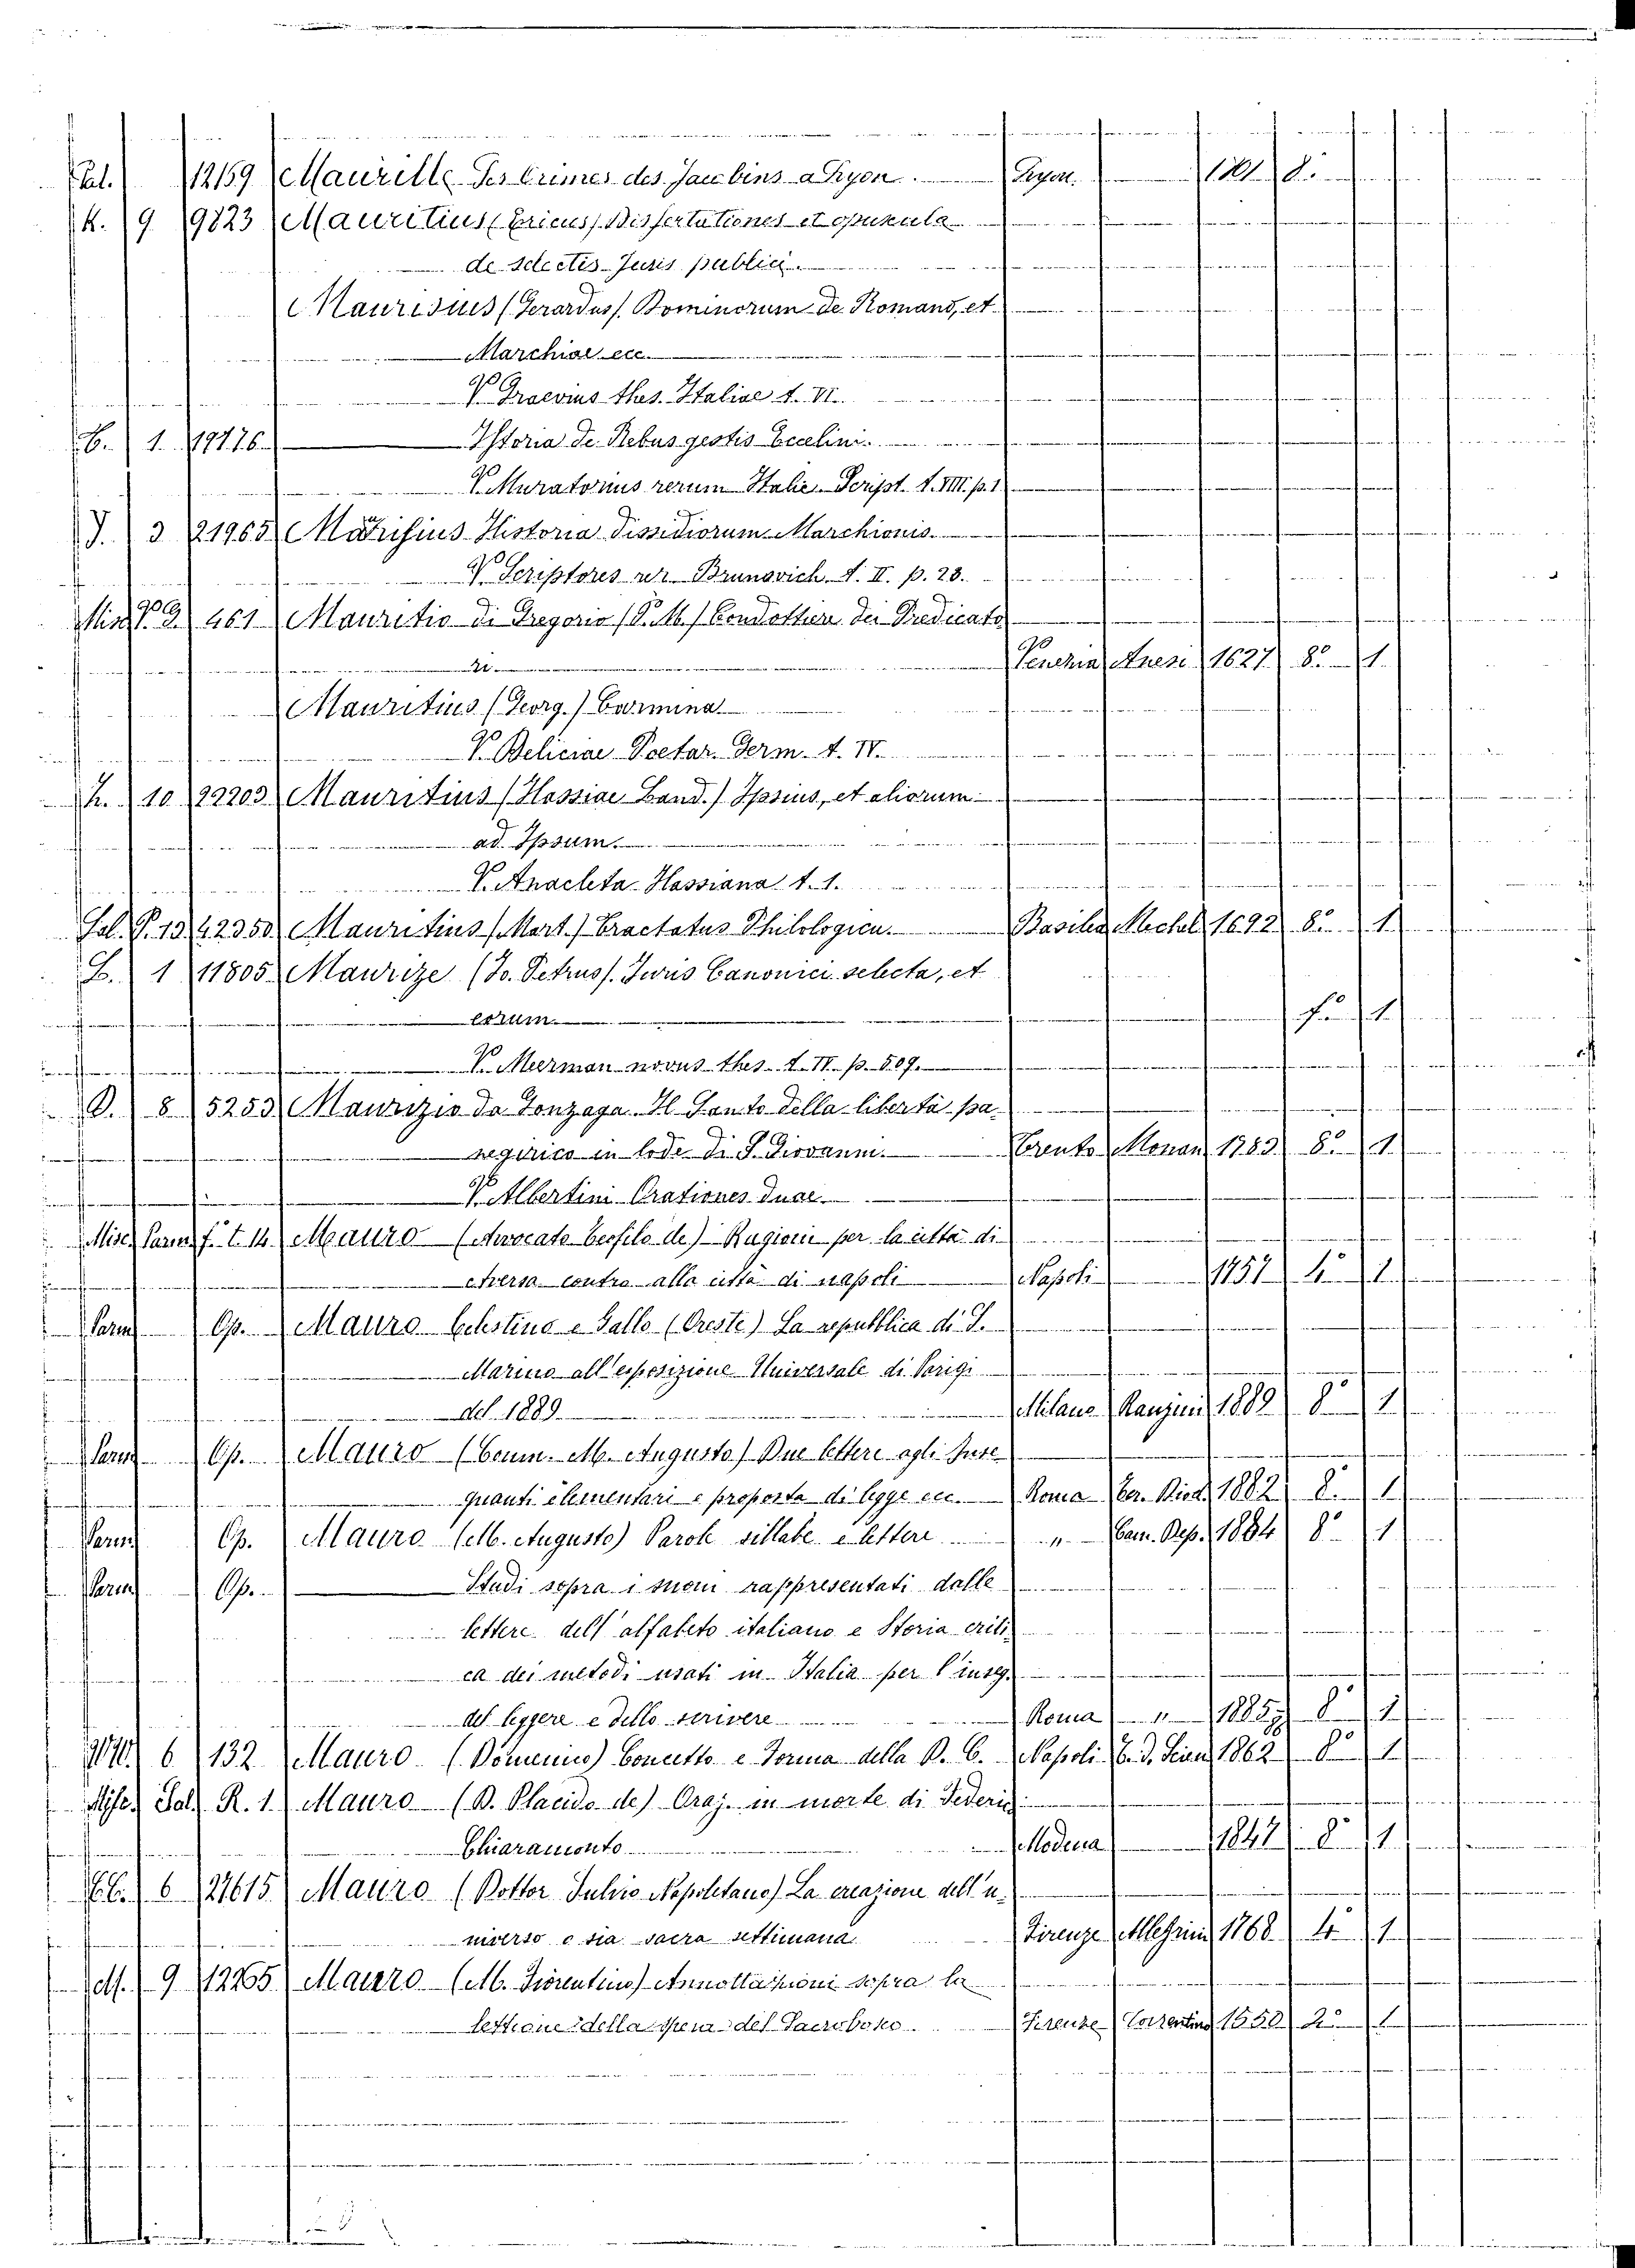 Pal. 12159 Maurille Les Crimes des Jacobins a Lyon. Lyon. 1801 8.°
K. 9 9823 Mauritius (Ericus) Dissertationes et opuscula
de selectis Juris publici.
Maurisius (Gerardus). Dominorum de Romano, et
Marchiae ecc.
V. Graevius thes. Italiae t. VI.
B. 1. 19776. Istoria de Rebus gestis Eccelini.
V. Muratorius rerum Italic. Script. t. VIII. p. 1
J. 3 21965 Maurisius Historia Dissidiorum Marchionis.
V. Scriptores rer. Brunsvich. t. II. p. 28.
Misc. V. 461 Mauritio di Gregorio (P. M.) Condottiere dei Predicato
ri Venezia Anesi 1627 8.° 1
Mauritius (Georg.) Carmina
V. Deliciae Poetar. Germ. t. IV.
h. 10 22203 Mauritius (Hassiae Land.) Ipsius, et aliorum
ad Ipsum.
V. Anacleta Hassiana t. 1.
Sal. P. 13 42350 Mauritius (Mart.) Tractatus Philologicu. Basilea Mechel 1692 8.° 1
L. 1 11805 Maurize (Jo. Petrus). Juris Canonici selecta, et
eorum. f.° 1
V. Meerman novus thes. t. IV. p. 509.
D. 8 5253 Maurizio da Gonzaga. Il Santo della libertà pa-
negirico in lode di S. Giovanni. Trento Monan 1783 8.° 1
V. Albertini Orationes duae.
Misc. Parm. f.° t. 14. Mauro (Avvocato Teofilo de) Ragioni per la città di
Aversa contro alla città di Napoli Napoli 1757 4.° 1
Parm Op. Mauro Celestino e Gallo (Oreste) La repubblica di S.
Marino all'esposizione Universale di Parigi
del 1889. Milano Ranzini 1889 8° 1
Parm Op. Mauro (Comm. M. Augusto) Due lettere agli Inse-
gnanti elementari e proposta di legge ecc. Roma Ter. Bied. 1882 8. 1
Parm Op. Mauro (M. Augusto) Parole sillabe e lettere " Cam. Dep. 1884 8° 1
Parm Op. Studi sopra i suoni rappresentati dalle
lettere dell'alfabeto italiano e Storia criti-
ca dei metodi usati in Italia per l'inseg.
del leggere e dello scrivere Roma " 1885 8° 1
6 132 Mauro (Domenico) Concetto e Forma della D. C. Napoli C. d. Scien 1862 8° 1
Misc. Sal. R. 1. Mauro (D. Placido de) Oraz. in morte di Federico
Chiaramonto Modena 1847 8° 1
6 27615 Mauro (Dottor Fulvio Napoletano) La creazione dell'u-
niverso o sia sacra settimana Firenze Allegrini 1768 4° 1
M. 9 12265 Mauro (M. Fiorentino) Annottazioni sopra la
lettione della spera del Sacrobosco. Firenze Torrentino 1550 2° 1